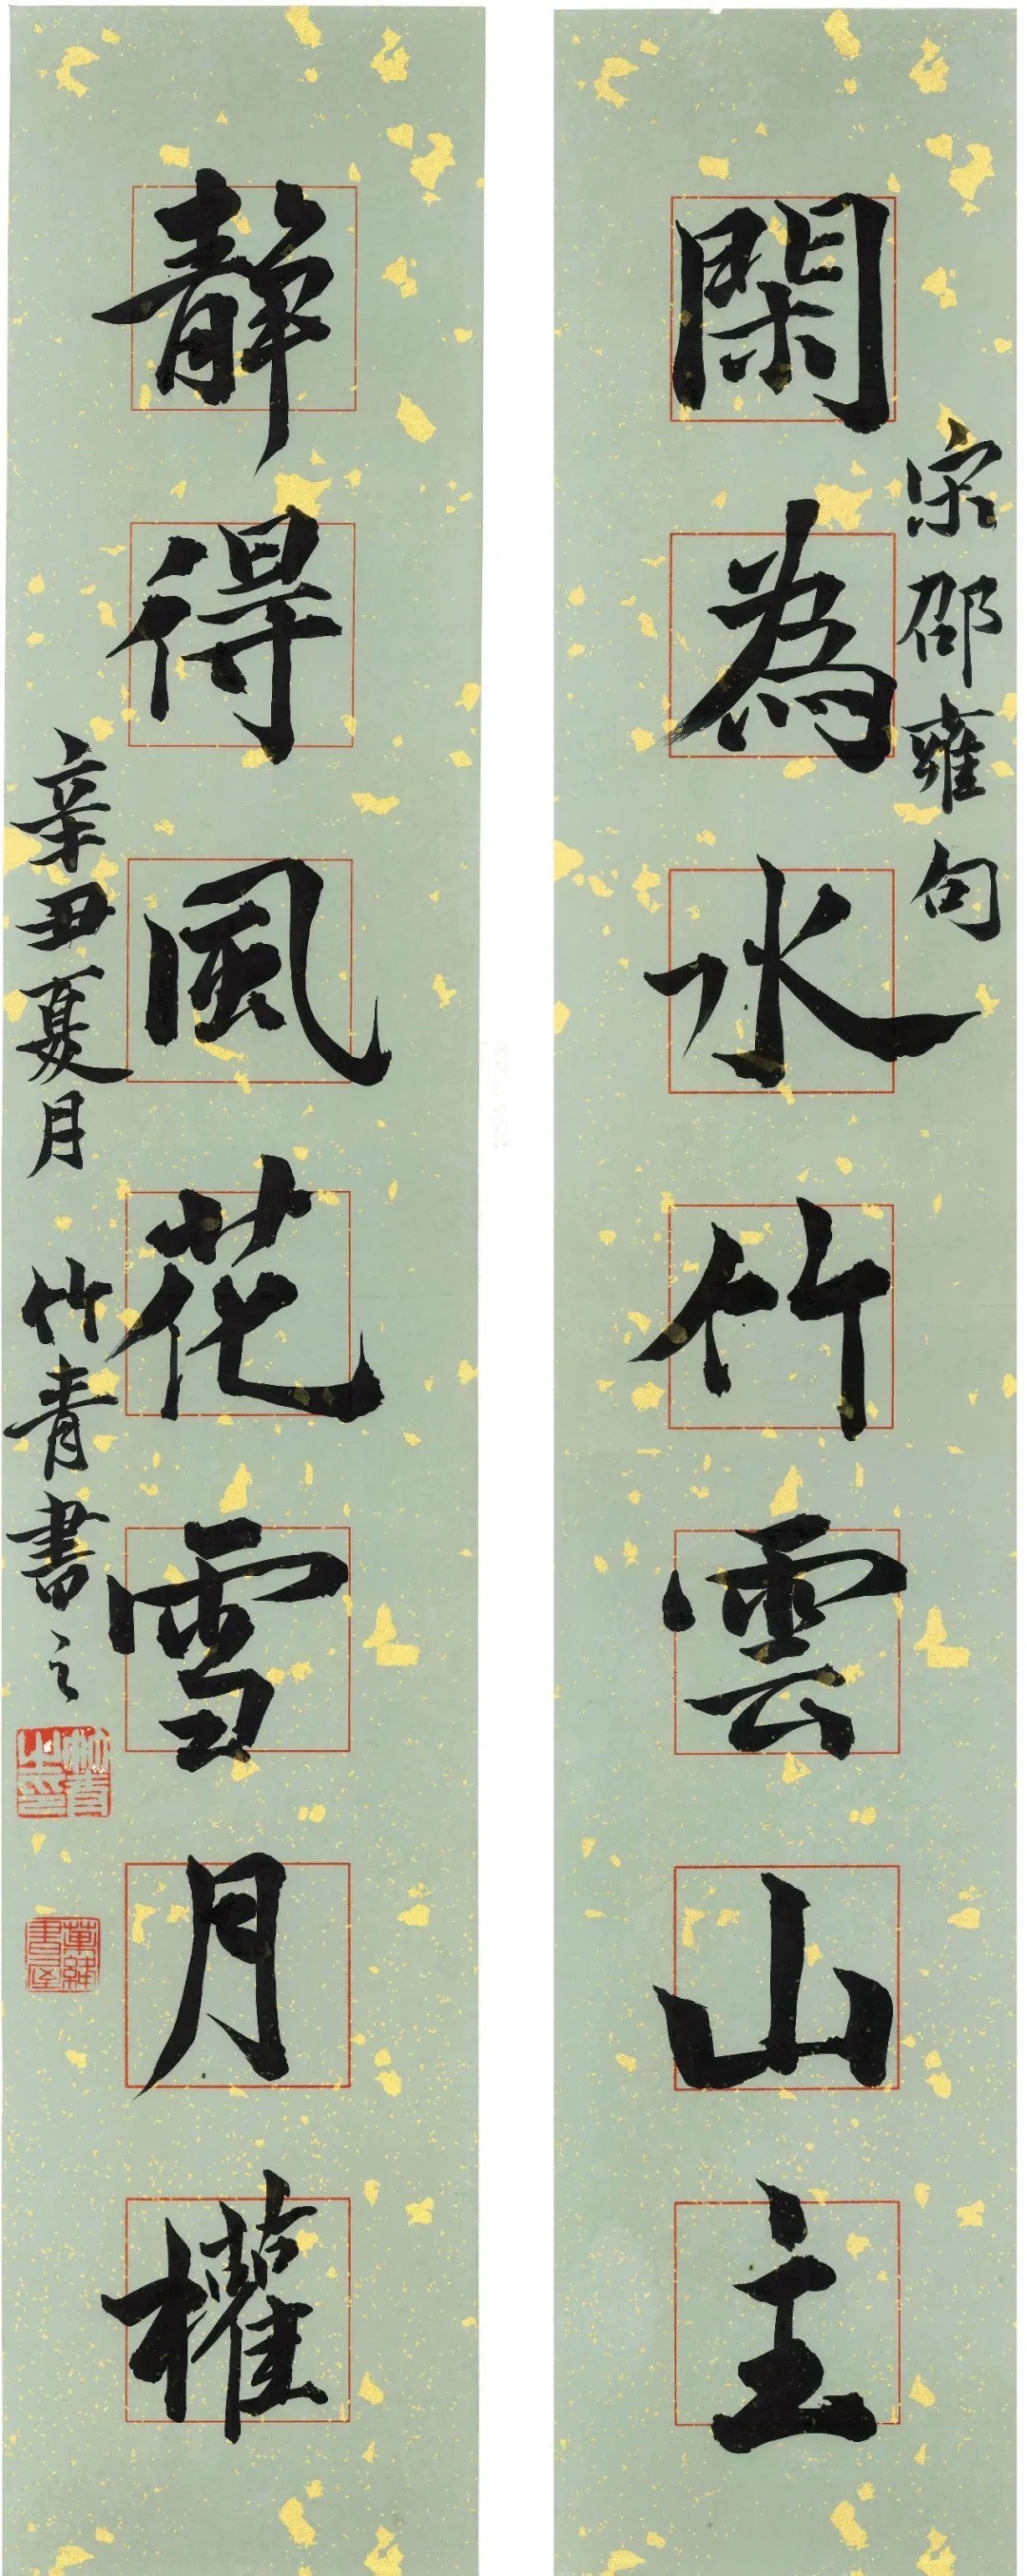 閑為水竹雲山主
宋邵雍句
静得風花雪月權
辛丑夏月 竹青書之
竹青之印